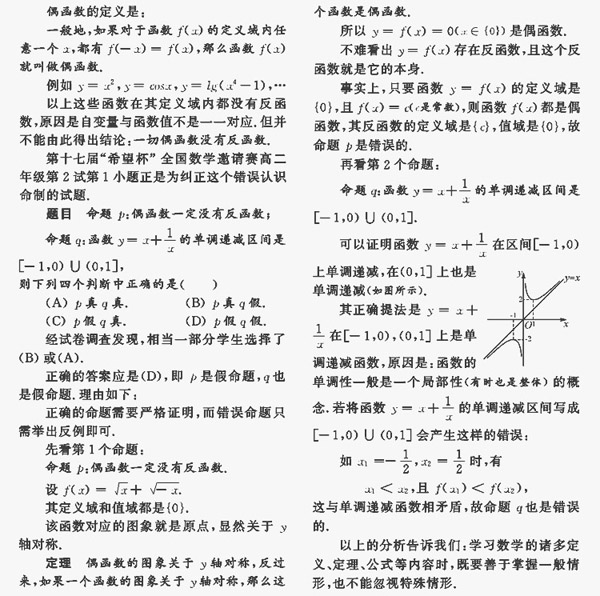 偶函数的定义是:
一般地,如果对于函数 f(x) 的定义域内任
意一个 x,都有 f(-x) = f(x),那么函数 f(x)
就叫做偶函数.
例如 y = x², y = cosx, y = lg(x⁴-1),…
以上这些函数在其定义域内都没有反函
数,原因是自变量与函数值不是一一对应.但并
不能由此得出结论:一切偶函数没有反函数.
第十七届“希望杯”全国数学邀请赛高二
年级第2试第1小题正是为纠正这个错误认识
命制的试题.
题目 命题 p:偶函数一定没有反函数;
命题 q:函数 y = x + 1/x 的单调递减区间是
[-1,0) ∪ (0,1],
则下列四个判断中正确的是( )
(A) p真 q真. (B) p真 q假.
(C) p假 q真. (D) p假 q假.
经试卷调查发现,相当一部分学生选择了
(B) 或(A).
正确的答案应是(D),即 p是假命题,q也
是假命题.理由如下:
正确的命题需要严格证明,而错误命题只
需举出反例即可.
先看第1个命题:
命题 p:偶函数一定没有反函数.
设 f(x) = √x + √-x.
其定义域和值域都是{0}.
该函数对应的图象就是原点,显然关于 y
轴对称.
定理 偶函数的图象关于 y轴对称,反过
来,如果一个函数的图象关于 y轴对称,那么这
个函数是偶函数.
所以 y = f(x) = 0(x ∈ {0}) 是偶函数.
不难看出 y = f(x) 存在反函数,且这个反
函数就是它的本身.
事实上,只要函数 y = f(x) 的定义域是
{0},且 f(x) = c(c是常数),则函数 f(x) 都是偶
函数,其反函数的定义域是{c},值域是{0},故
命题 p是错误的.
再看第2个命题:
命题 q:函数 y = x + 1/x 的单调递减区间是
[-1,0) ∪ (0,1].
可以证明函数 y = x + 1/x 在区间[-1,0)
上单调递减,在(0,1] 上也是
单调递减(如图所示).
其正确提法是 y = x +
1/x 在[-1,0),(0,1] 上是单
调递减函数,原因是:函数的
y
y=x
2
-1
O
1
x
-2
单调性一般是一个局部性(有时也是整体) 的概
念.若将函数 y = x + 1/x 的单调递减区间写成
[-1,0) ∪ (0,1] 会产生这样的错误:
如 x₁ = -1/2, x₂ = 1/2 时,有
x₁ < x₂,且 f(x₁) < f(x₂),
这与单调递减函数相矛盾,故命题 q也是错误
的.
以上的分析告诉我们:学习数学的诸多定
义、定理、公式等内容时,既要善于掌握一般情
形,也不能忽视特殊情形.